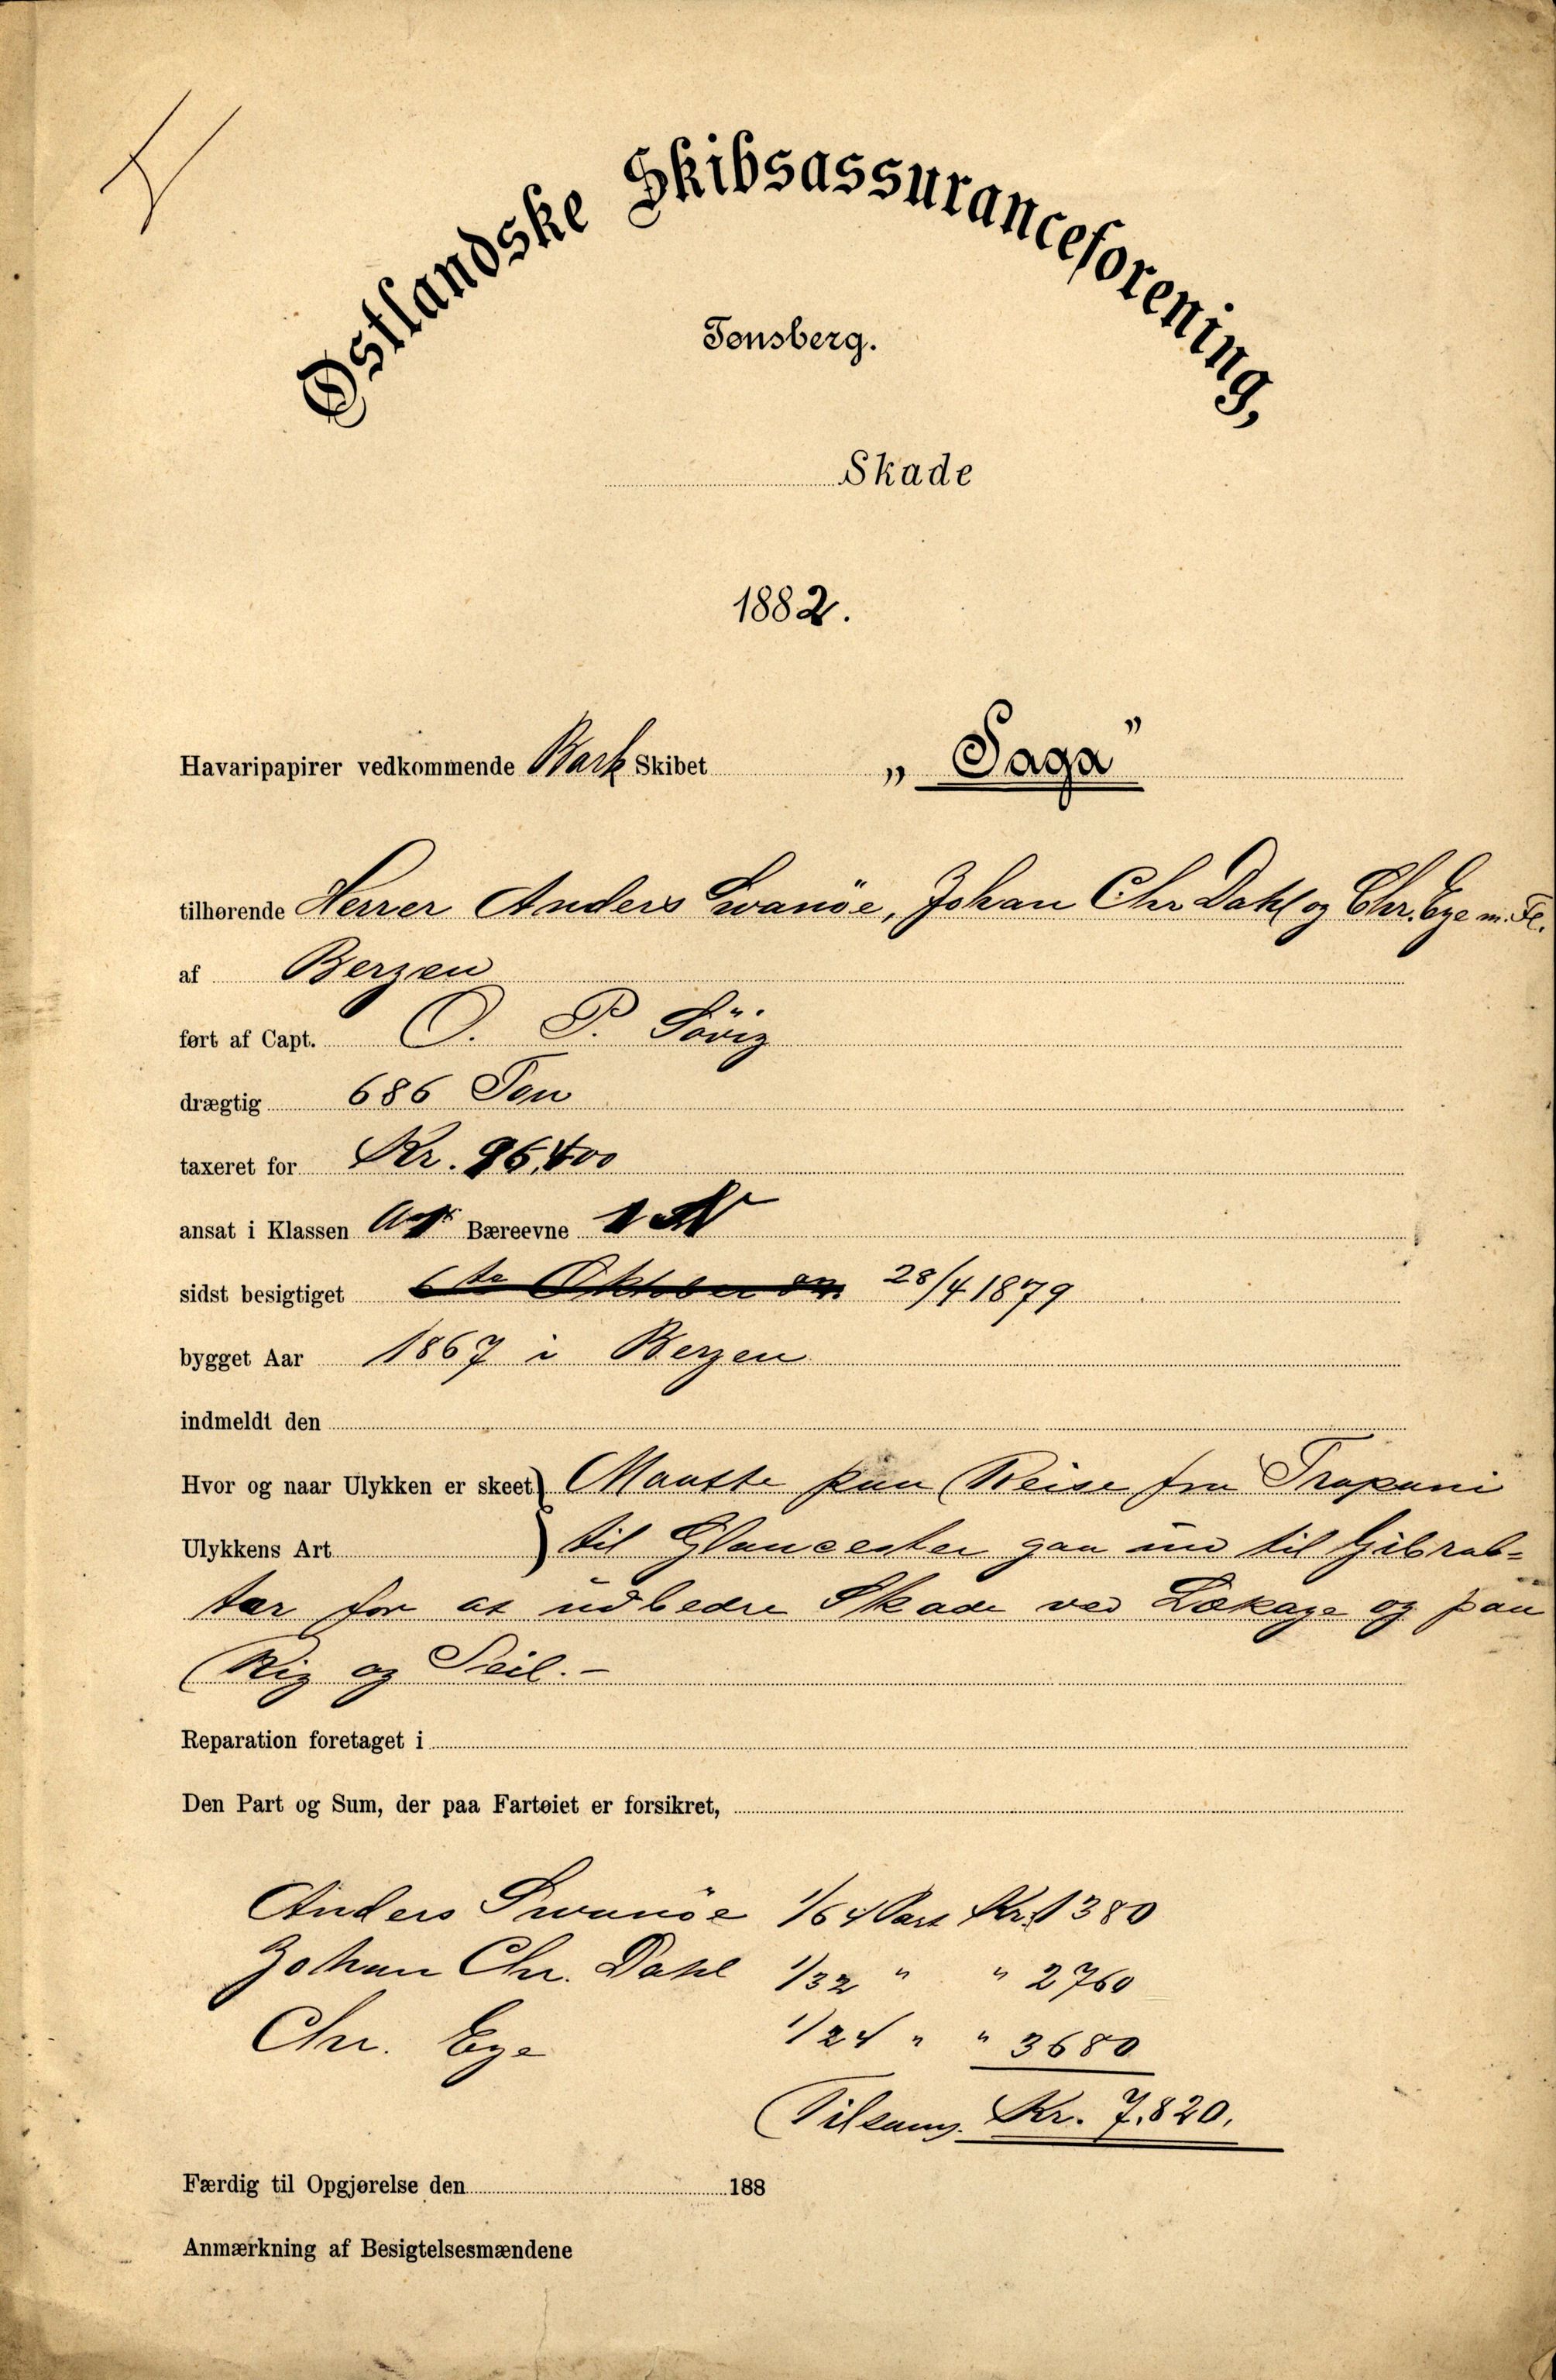 Østlandske Skibsassuranceforening,
Tønsberg.
Skade
1882.
Havaripapirer vedkommende Bark Skibet „Saga”
tilhørende Herrer Anders Svanöe, Johan Chr Dahl og Chr. Eye m. Fl.
af Bergen
ført af Capt. O. P. Sövig
drægtig 686 Ton
taxeret for Kr.
ansat i Klassen Bæreevne
sidst besigtiget 6te Oktober 28/4 1879
bygget Aar 1867 i Bergen
indmeldt den
Hvor og naar Ulykken er skeet) Maatte paa Reise fra Trapani
Ulykkens Art ) til Gloucester gaa ind til Gibral-
tar for at udbedre Skade ved Lækage og paa
Rig og Seil. –
Reparation foretaget i
Den Part og Sum, der paa Fartøiet er forsikret,
Anders Svanöe 1/64 Part Kr. 1380
Johan Chr. Dahl 1/32 " " 2760
Chr. Eye 1/24 " " 3680
Tilsams. Kr. 7.820.
Færdig til Opgjørelse den 188
Anmærkning af Besigtelsesmændene